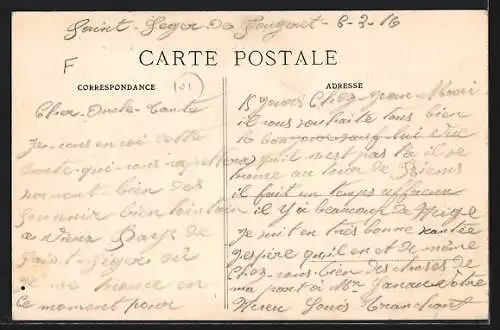 Saint-Leger de Fougeret - 6-3-16
CARTE POSTALE
F
CORRESPONDANCE
ADRESSE
Cher Oncle-Tante
Je vous envoi cette
Carte qui vous rapellera
surement bien des
Souvenir bien lointain
ce Vieux Pays de
Saint-Leger où
je me trouve en
ce moment pour
15 jours Chez Jean-Marie
il vous souhaite tous bien
le bonjour sauf lui
qu'il n'est pas là il se
trouve au tour de Reims
il fait un temps affreux
il y a beaucoup de Neige
Je suit en très bonne santée
j'espère qu'il en et de même
Chez-vous bien des choses de
ma part à Mr votre
Neveu Louis